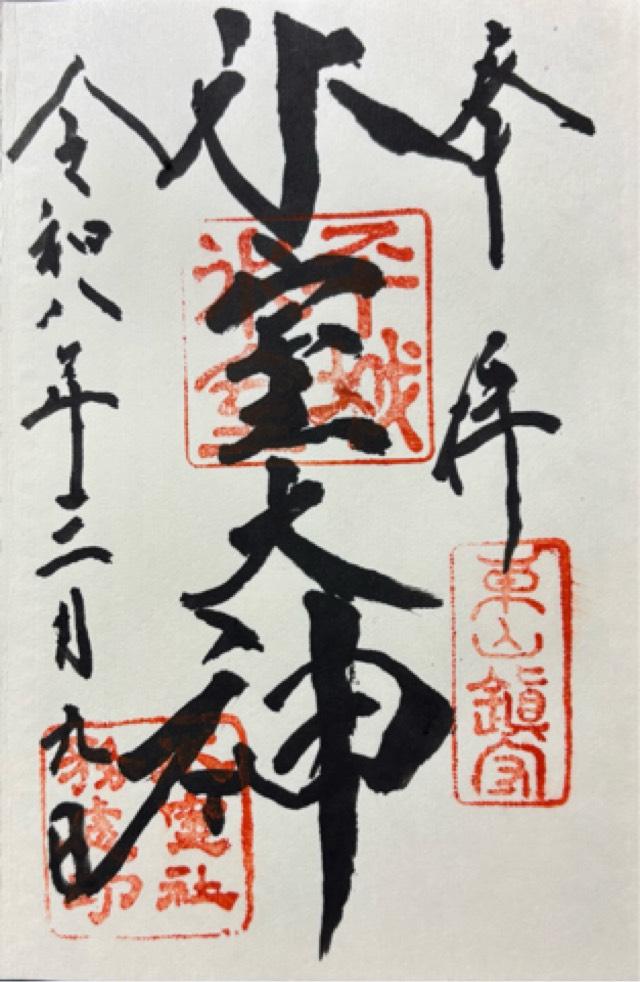 奉拝
東山鎮守
氷室大神
平城
氷室
令和八年三月九日
氷室社
務處印